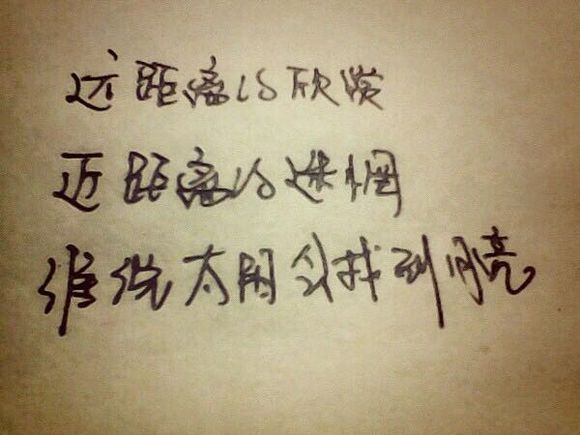 远距离的欣赏
近距离的迷惘
谁说太阳会找到月亮